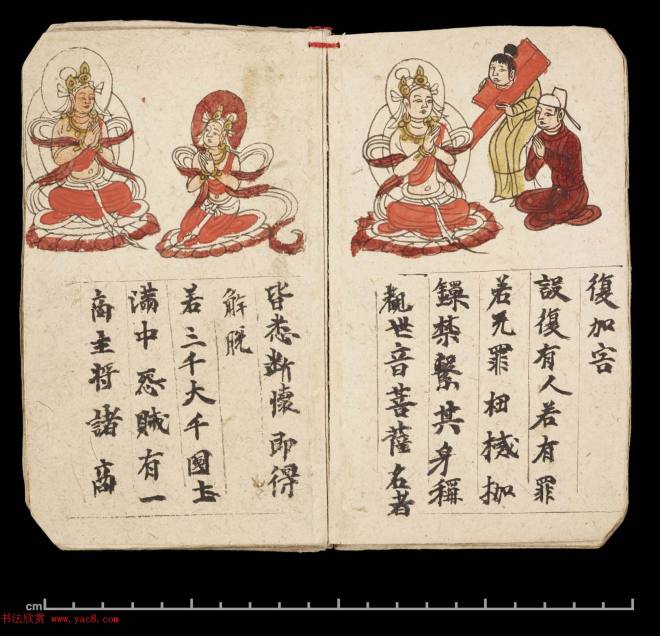 復加害
設復有人若有罪
若无罪杻械枷
鏁禁繫其身稱
觀世音菩薩名者
皆悉斷懷即得
解脫
若三千大千國土
滿中怨賊有一
商主將諸商
cm
书法欣赏 www.yac8.com